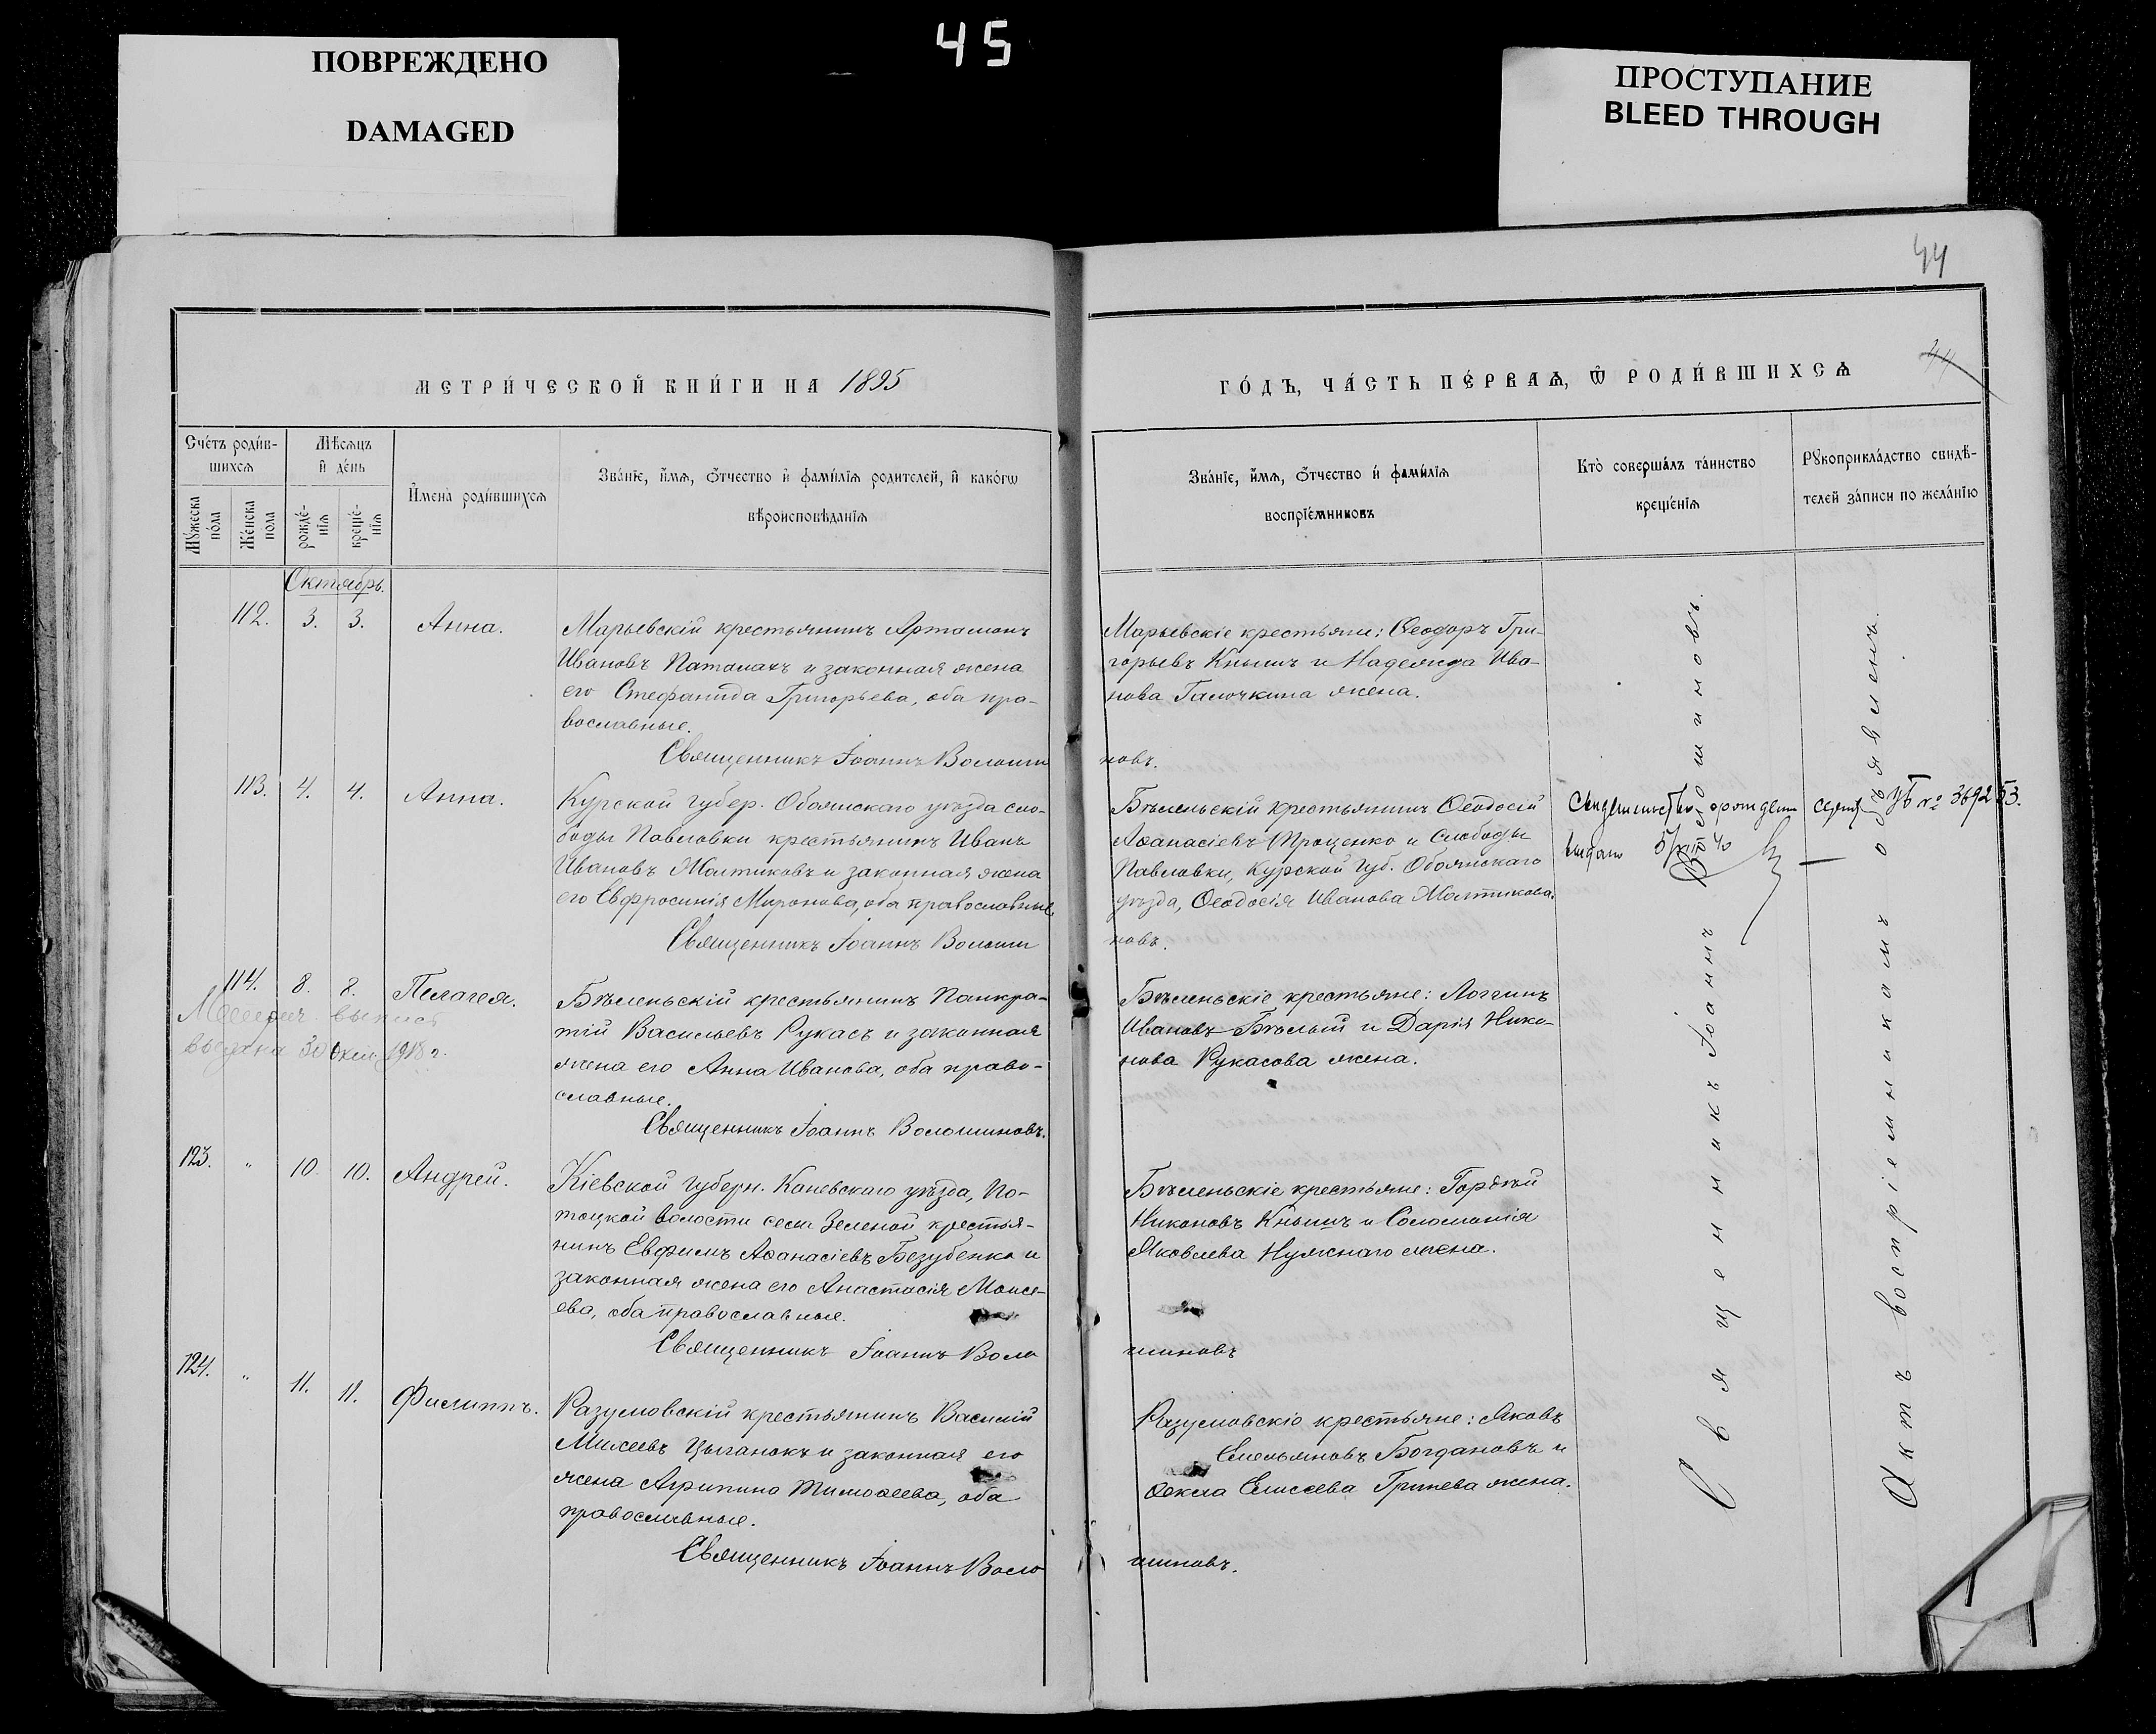 45
ПОВРЕЖДЕНО
DAMAGED
ПРОСТУПАНИЕ
BLEED THROUGH
44
44
МЕТРИ́ЧЕСКОЙ КНИ́ГИ НА 1895
ГО́ДЪ, ЧА́СТЬ ПЕ́РВАѦ, Ѿ РОДИ́ВШИХСѦ
Сче́тъ роди́в-
шихсѧ
Мѣсѧцъ
и҆ де́нь
Мꙋ́жеска
по́ла
Же́нска
пола
рожде́-
нїѧ
креще́-
нїѧ
И҆мена̀ роди́вшихсѧ
Зва́нїе, и҆́мѧ, ѻ҆́тчество и҆ фами́лїѧ родителей, и҆ како́гѡ
вѣроисповѣданїѧ
Зва́нїе, и҆́мѧ, ѻ҆́тчество и҆ фами́лїѧ
воспрїе́мниковъ
Кто̀ соверша́лъ та́инство
креще́нїѧ
Рꙋкоприкла́дство свидѣ-
телей за́писи по жела́нїю
Октябрь.
112. 3. 3. Анна.
Марьевскій крестьянинъ Артамонъ
Ивановъ Паталахъ и законная жена
его Стефанида Григорьева, оба пра-
вославные.
Священникъ Іоаннъ Волоши
Марьевскіе крестьяне: Ѳеодоръ Гри-
горьевъ Кнышъ и Надежда Ива-
нова Галочкина жена.
новъ.
113. 4. 4. Анна.
Курской губер. Обоянскаго уѣзда сло-
боды Павловки крестьянинъ Иванъ
Ивановъ Жолтиковъ и законная жена
его Евфросинія Миронова, оба православные,
Священникъ Іоаннъ Волоши
Бѣленьскій крестьянинъ Ѳеодосій
Аѳанасіевъ Троценко и Слободы
Павловки, Курской Губ. Обоянскаго
уѣзда, Ѳеодосія Иванова Жолтикова.
новъ.
выдано 5/XII 40
№ 369253.
114. 8. 8. Пелагея.
выпись
выдана 30 1918 г.
Бѣленьскій крестьянинъ Панкра-
тій Васильевъ Рукасъ и законная
жена его Анна Иванова, оба право-
славные.
Священникъ Іоаннъ Волошиновъ.
Бѣленьскіе крестьяне: Логгинъ
Ивановъ Бѣлый и Дарія Нико-
нова Рукасова жена.
123. " 10. 10. Андрей.
Кіевской губерн. Каневскаго уѣзда, По-
тоцкой волости села Зеленой крестья-
нинъ Евфимъ Аѳанасіевъ Безубенко и
законная жена его Анастасія Моисе-
ева, оба православные.
Священникъ Іоаннъ Воло
Бѣленьскіе крестьяне: Гордѣй
Никоновъ Кнышъ и Соломонія
Яковлева Нужнаго жена.
шиновъ
124. " 11. 11. Филиппъ.
Разумовскій крестьянинъ Василій
Михеевъ Цыганокъ и законная его
жена Агрипина Тимоѳеева, оба
православные.
Священникъ Іоаннъ Воло
Разумовскіе крестьяне: Яковъ
Емельяновъ Богдановъ и
Ѳекла Елисеева Гринева жена.
шиновъ.
Священникъ Іоаннъ Волошиновъ.
Актъ воспріемникамъ объявленъ.